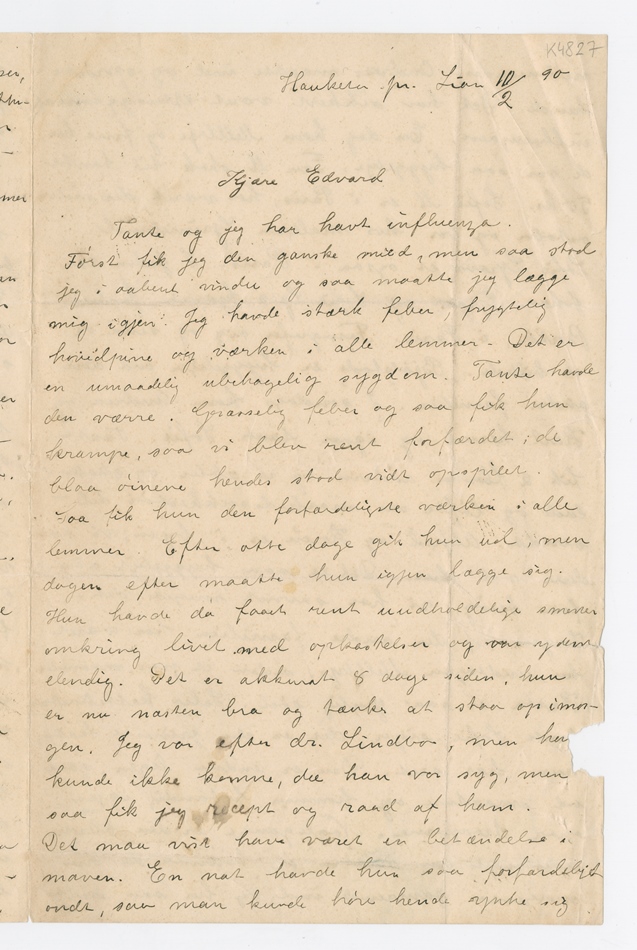 K4827
Hauketo pr. Lian 10/2 90
Kjære Edvard
Tante og jeg har havt influenza.
Først fik jeg den ganske mild, men saa stod
jeg i aabent vindu og saa maatte jeg lægge
mig igjen. Jeg havde stærk feber, frygtelig
hovedpine og værken i alle lemmer - Det er
en umaadelig ubehagelig sygdom. Tante havde
den værre. Græsselig feber og saa fik hun
krampe, saa vi blev rent forfærdet; de
blaa øinene hendes stod vidt opspilet.
Saa fik hun den forfærdeligste værken i alle
lemmer. Efter otte dage gik hun ud, men
dagen efter maatte hun igjen lægge sig.
Hun havde da faaet rent uudholdelige smerter
omkring livet med opkastelser og var yderst
elendig. Det er akkurat 8 dage siden, hun
er nu næsten bra og tænker at staa op imor-
gen. Jeg var efter dr. Lindboe, men han
kunde ikke komme, da han var syg, men
saa fik jeg recept og raad af ham.
Det maa vist have været en betændelse i
maven. En nat havde hun saa forfærdeligt
ondt, saa man kunde høre hende ynke sig